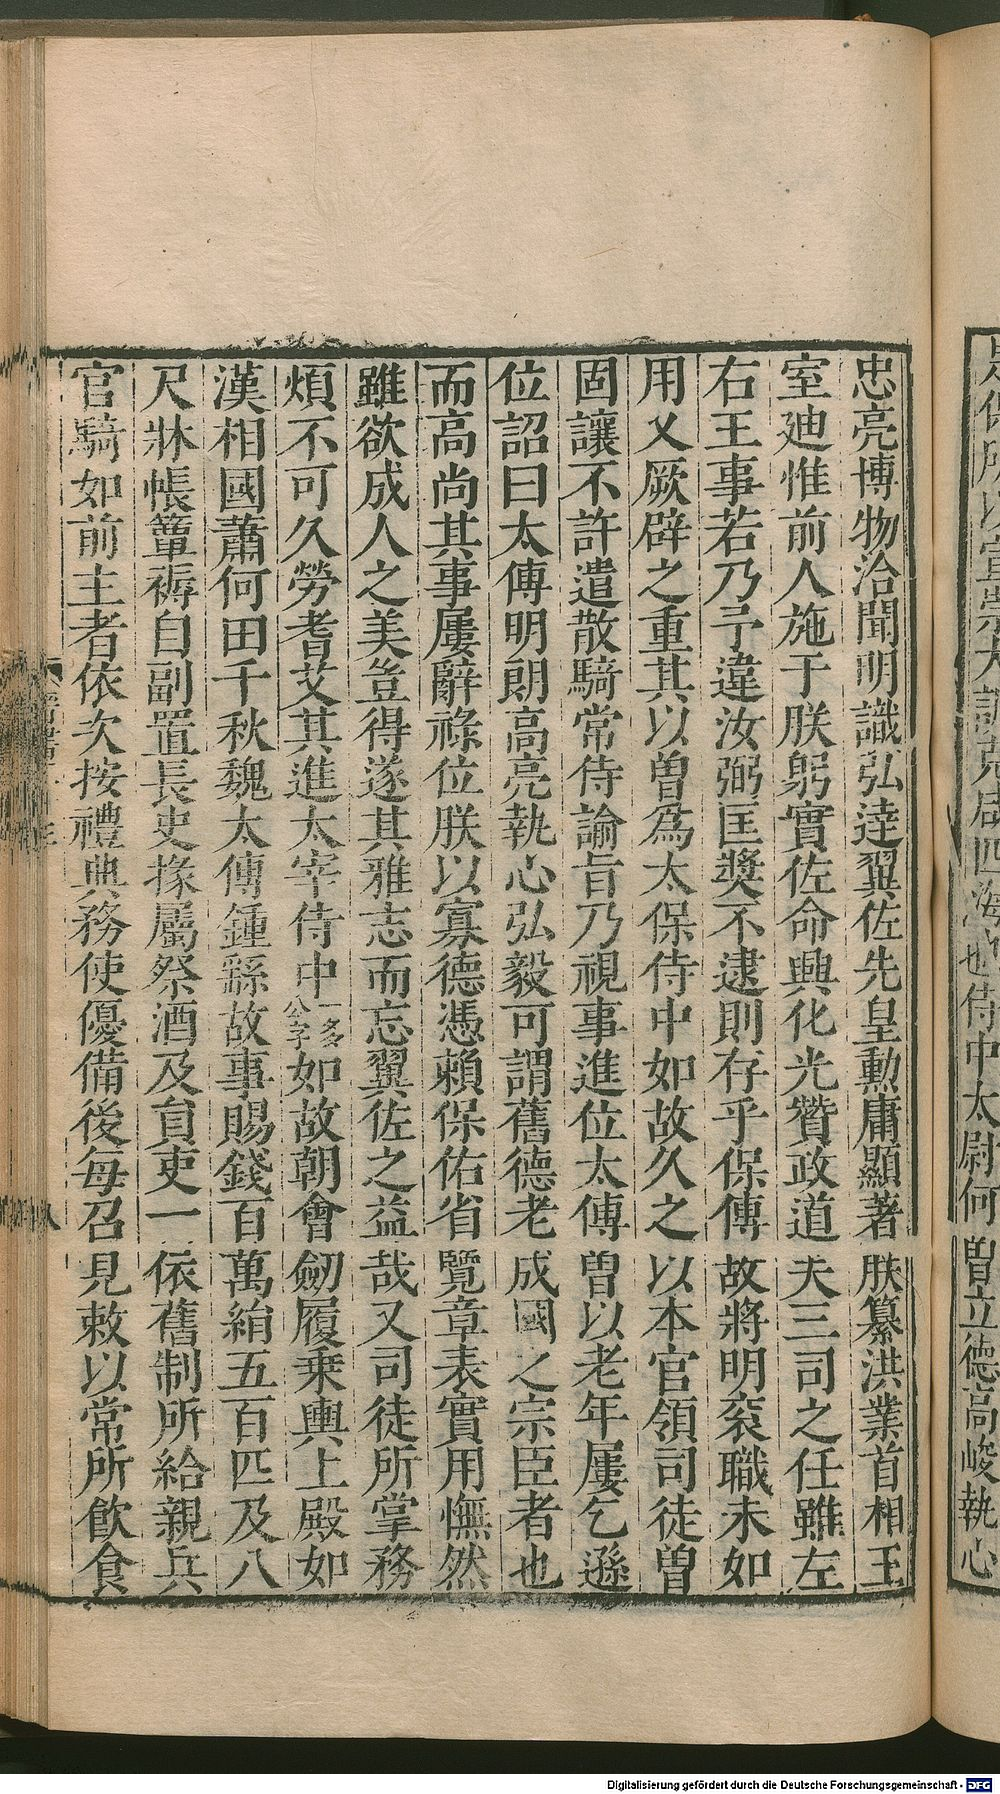 忠亮博物洽聞明識弘逹翼佐先皇勳庸顯著朕纂洪業首相王
室迪惟前人施于朕躬實佐命興化光贊政道夫三司之任雖左
右王事若乃予違汝弼匡奬不逮則存乎保傅故將明袞職未如
用乂厥辟之重其以曽爲太保侍中如故久之以本官領司徒曽
固讓不許遣散騎常侍諭旨乃視事進位太傅曽以老年屢乞遜
位詔曰太傅明朗高亮執心弘毅可謂舊德老成國之宗臣者也
而高尚其事屢辭祿位朕以寡德憑賴保佑省覽章表實用憮然
雖欲成人之美豈得遂其雅志而忘翼佐之益哉又司徒所掌務
煩不可久勞耆艾其進太宰侍中一多公字如故朝會劒履乗輿上殿如
漢相國蕭何田千秋魏太傅鍾繇故事賜錢百萬絹五百匹及八
尺牀帳簟褥自副置長史掾屬祭酒及貟吏一依舊制所給親兵
官騎如前主者依次按禮典務使優備後每召見敕以常所飲食
也侍中太尉何曽立德高峻執心
Digitalisierung gefördert durch die Deutsche Forschungsgemeinschaft - DFG